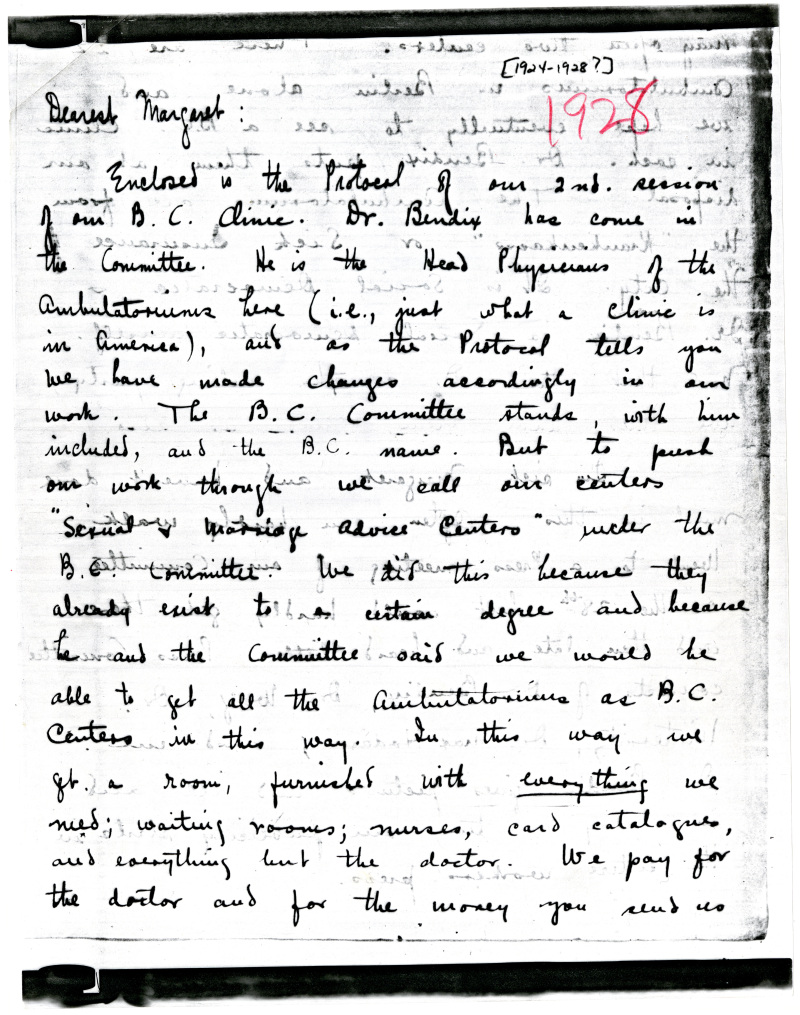 [1924-1928?]
1928
Dearest Margaret:
Enclosed is the Protocol of our 2nd. session
of our B. C. Clinic. Dr. Bendix has come in
the Committee. He is the Head Physicians of the
Ambulatoriums here (i.e., just what a clinic is
in America), and as the Protocol tells you
we have made changes accordingly in our
work. The B. C. Committee stands, with him
included, and the B.C. name. But to push
our work through we call our centers
"Sexual & Marriage Advice Centers" under the
B.C. Committee. We did this because they
already exist to a certain degree and because
he and the Committee said we would be
able to get all the Ambulatoriums as B.C.
Centers in this way. In this way we
get a room, furnished with everything we
need; waiting rooms; nurses, card catalogues,
and everything but the doctor. We pay for
the doctor and for the money you send us